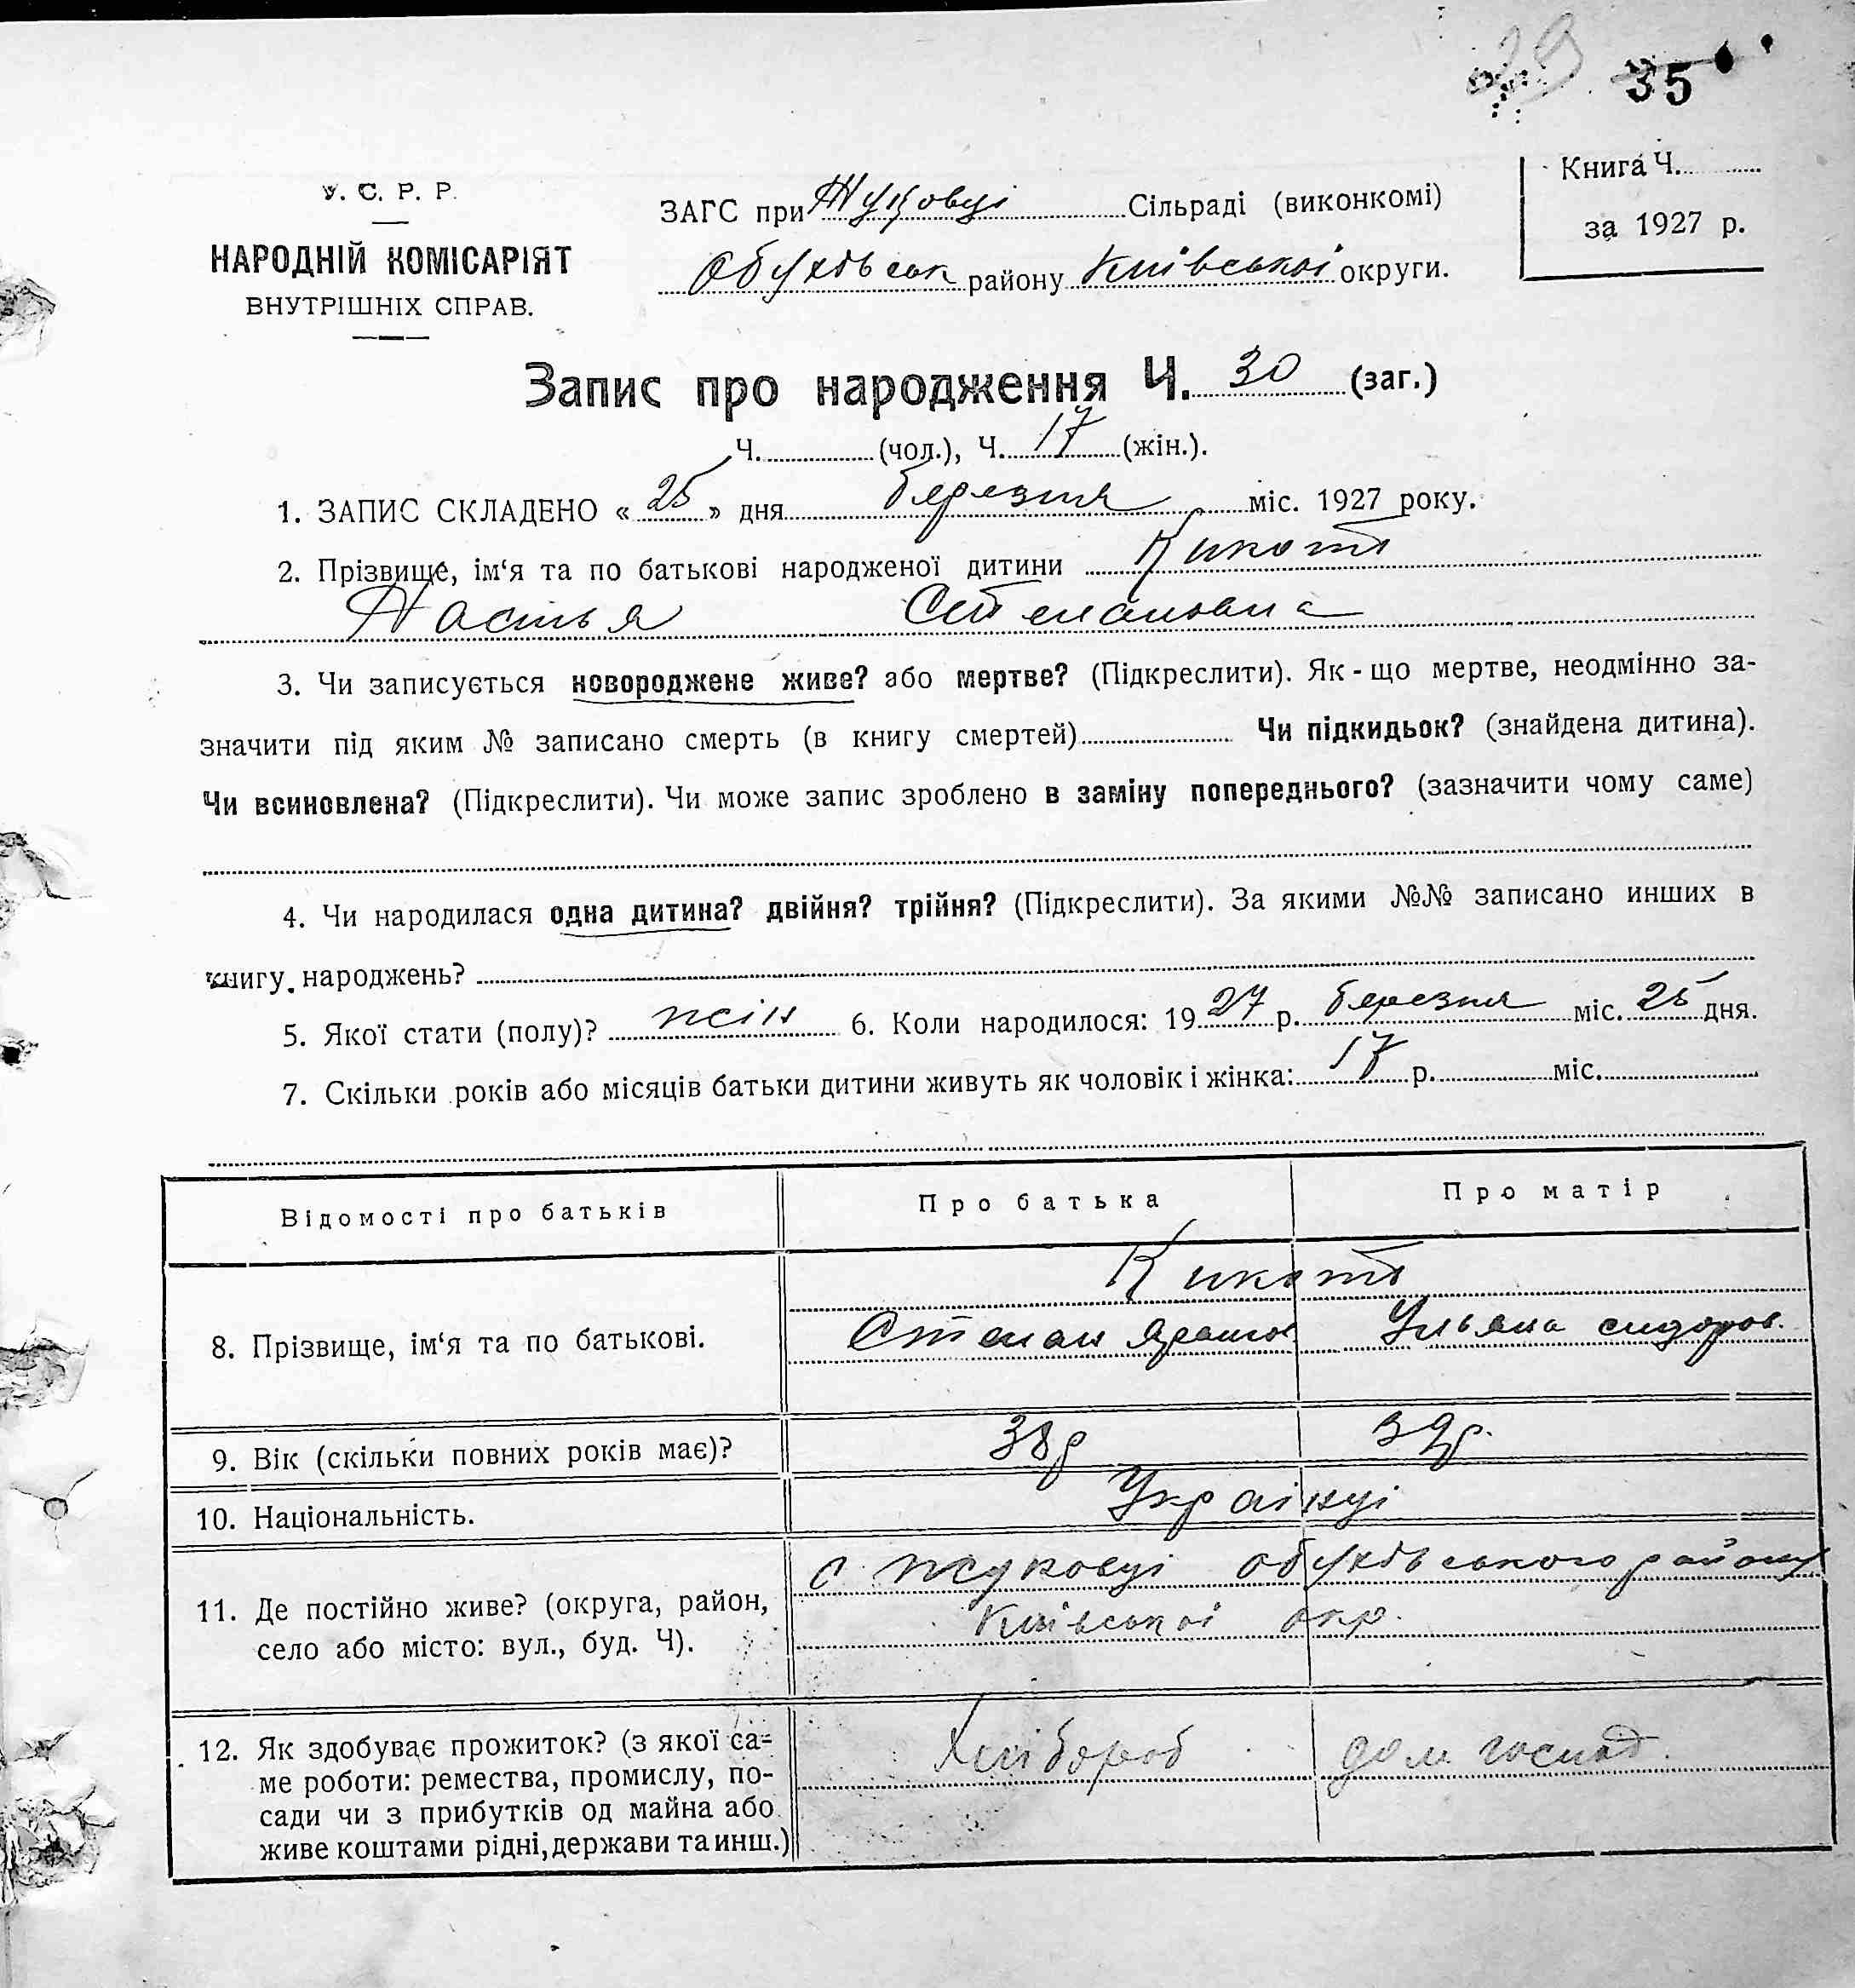 29 35
У. С. Р. Р.
НАРОДНІЙ КОМІСАРІЯТ
ВНУТРІШНІХ СПРАВ.
ЗАГС при Жуковці Сільраді (виконкомі)
Обухівськ району Київської округи.
Книга Ч.
за 1927 р.
Запис про народження Ч. 30 (заг.)
Ч. (чол.), Ч. 17 (жін.).
1. ЗАПИС СКЛАДЕНО « 25 » дня березня міс. 1927 року.
2. Прізвище, ім‘я та по батькові народженої дитини Кикоть
Настья Степановна
3. Чи записується новороджене живе? або мертве? (Підкреслити). Як - що мертве, неодмінно за-
значити під яким № записано смерть (в книгу смертей) Чи підкидьок? (знайдена дитина).
Чи всиновлена? (Підкреслити). Чи може запис зроблено в заміну попереднього? (зазначити чому саме)
4. Чи народилася одна дитина? двійня? трійня? (Підкреслити). За якими №№ записано инших в
книгу народжень?
5. Якої стати (полу)? жін 6. Коли народилося: 19 27 р. березня міс. 25 дня.
7. Скільки років або місяців батьки дитини живуть як чоловік і жінка: 17 р. міс.
Відомості про батьків Про батька Про матір
Кикоть
8. Прізвище, ім‘я та по батькові. Степан Ульяна сидоров.
9. Вік (скільки повних років має)? 38 р 39 р.
10. Національність. Українці
с Жуковці обухівського району
11. Де постійно живе? (округа, район,
село або місто: вул., буд. Ч). Київської окр.
12. Як здобуває прожиток? (з якої са-
ме роботи: ремества, промислу, по-
сади чи з прибутків од майна або
живе коштами рідні, держави та инш.)
Хлібороб дом господ.